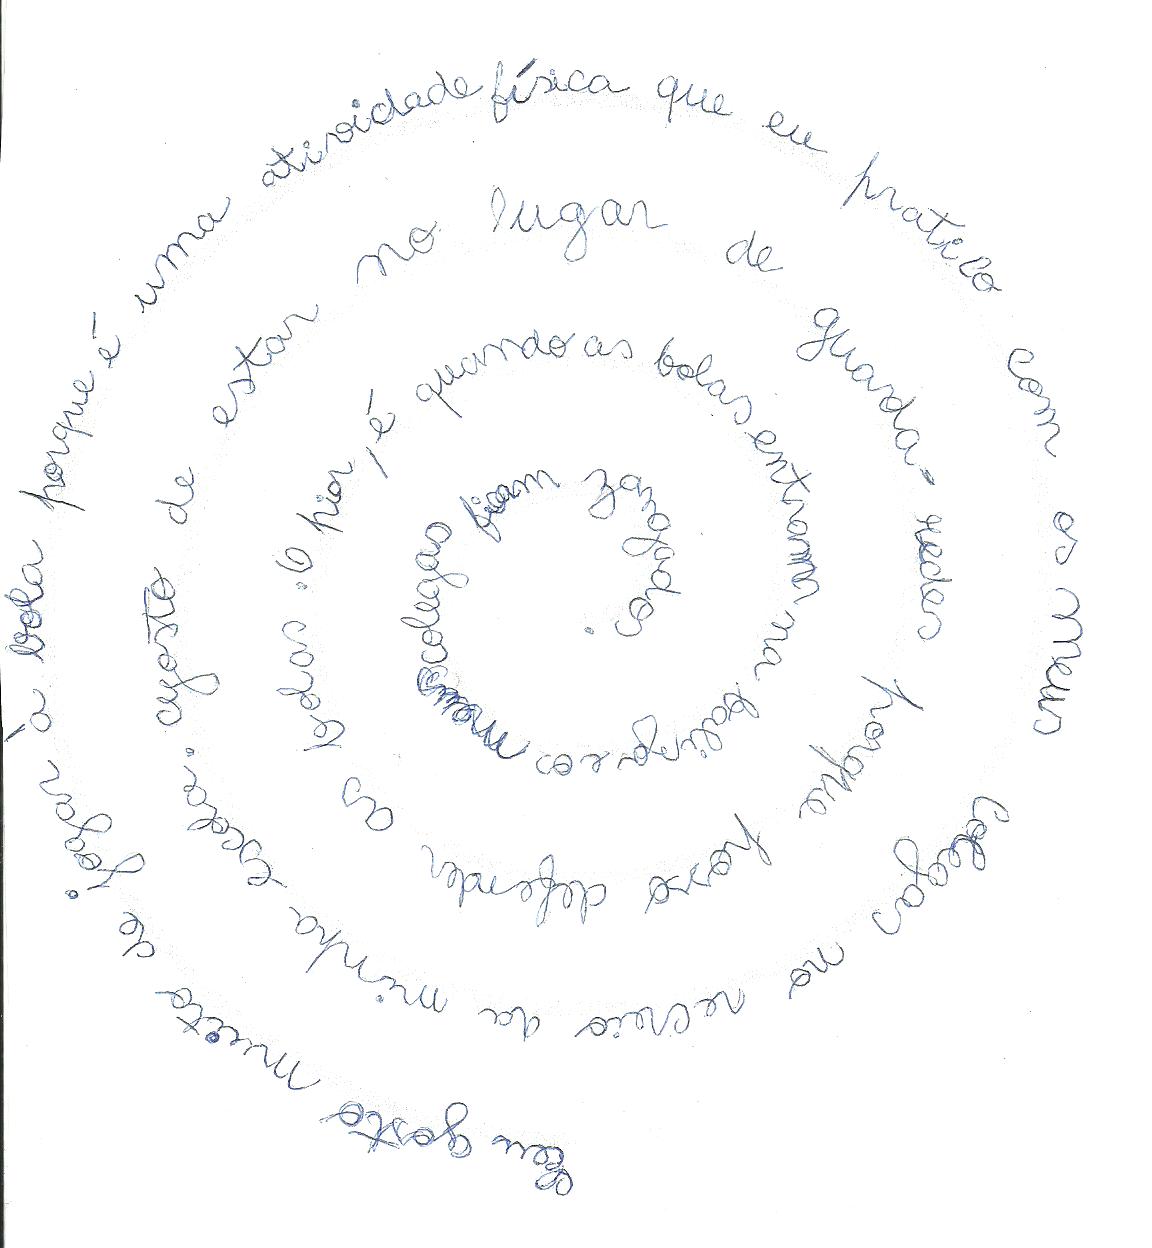 Eu gosto muito de jogar à bola porque é uma atividade física que eu pratico com os meus colegas no recreio da minha escola. gosto de estar no lugar de guarda-redes porque posso defender as bolas. O pior, é quando as bolas entram na baliza e os meus colegas ficam zangados.